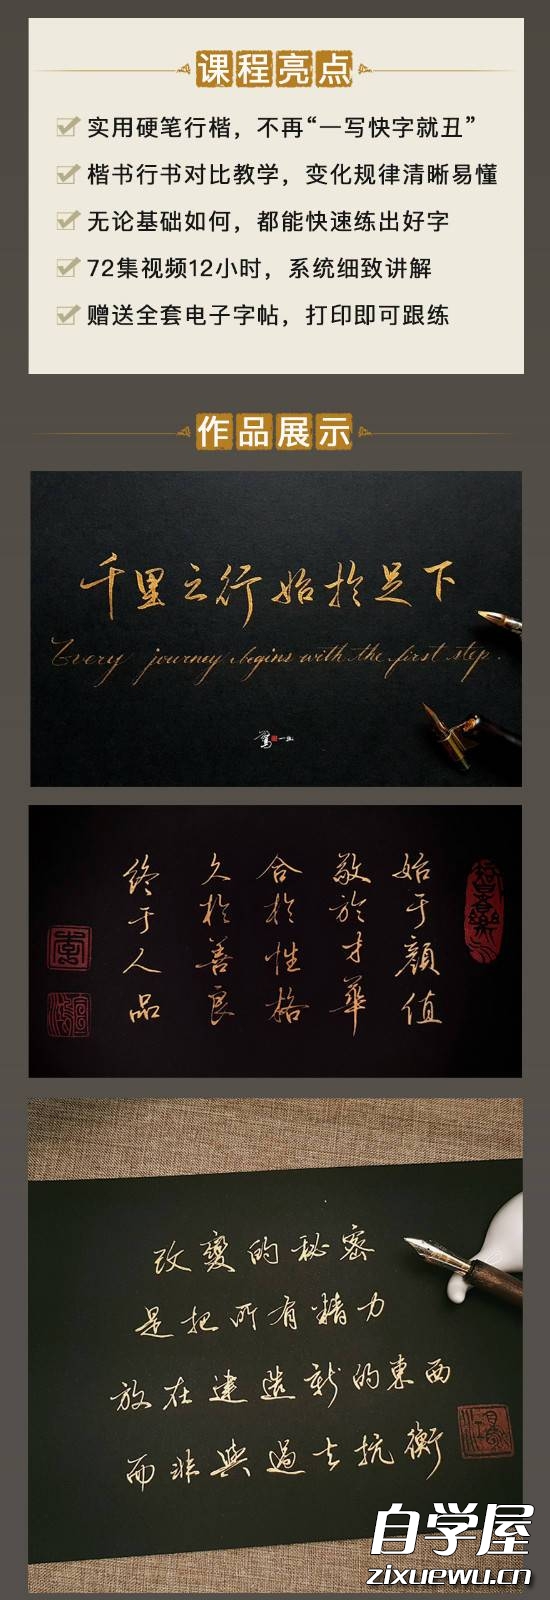 课程亮点
实用硬笔行楷，不再“一写快字就丑”
楷书行书对比教学，变化规律清晰易懂
无论基础如何，都能快速练出好字
72集视频12小时，系统细致讲解
赠送全套电子字帖，打印即可跟练
作品展示
千里之行始於足下
Every journey begins with the first step.
始于顏值
敬於才華
合於性格
久於善良
终于人品
改變的秘密
是把所有精力
放在建造新的東西
而非與過去抗衡
自学屋
zixuewu.cn